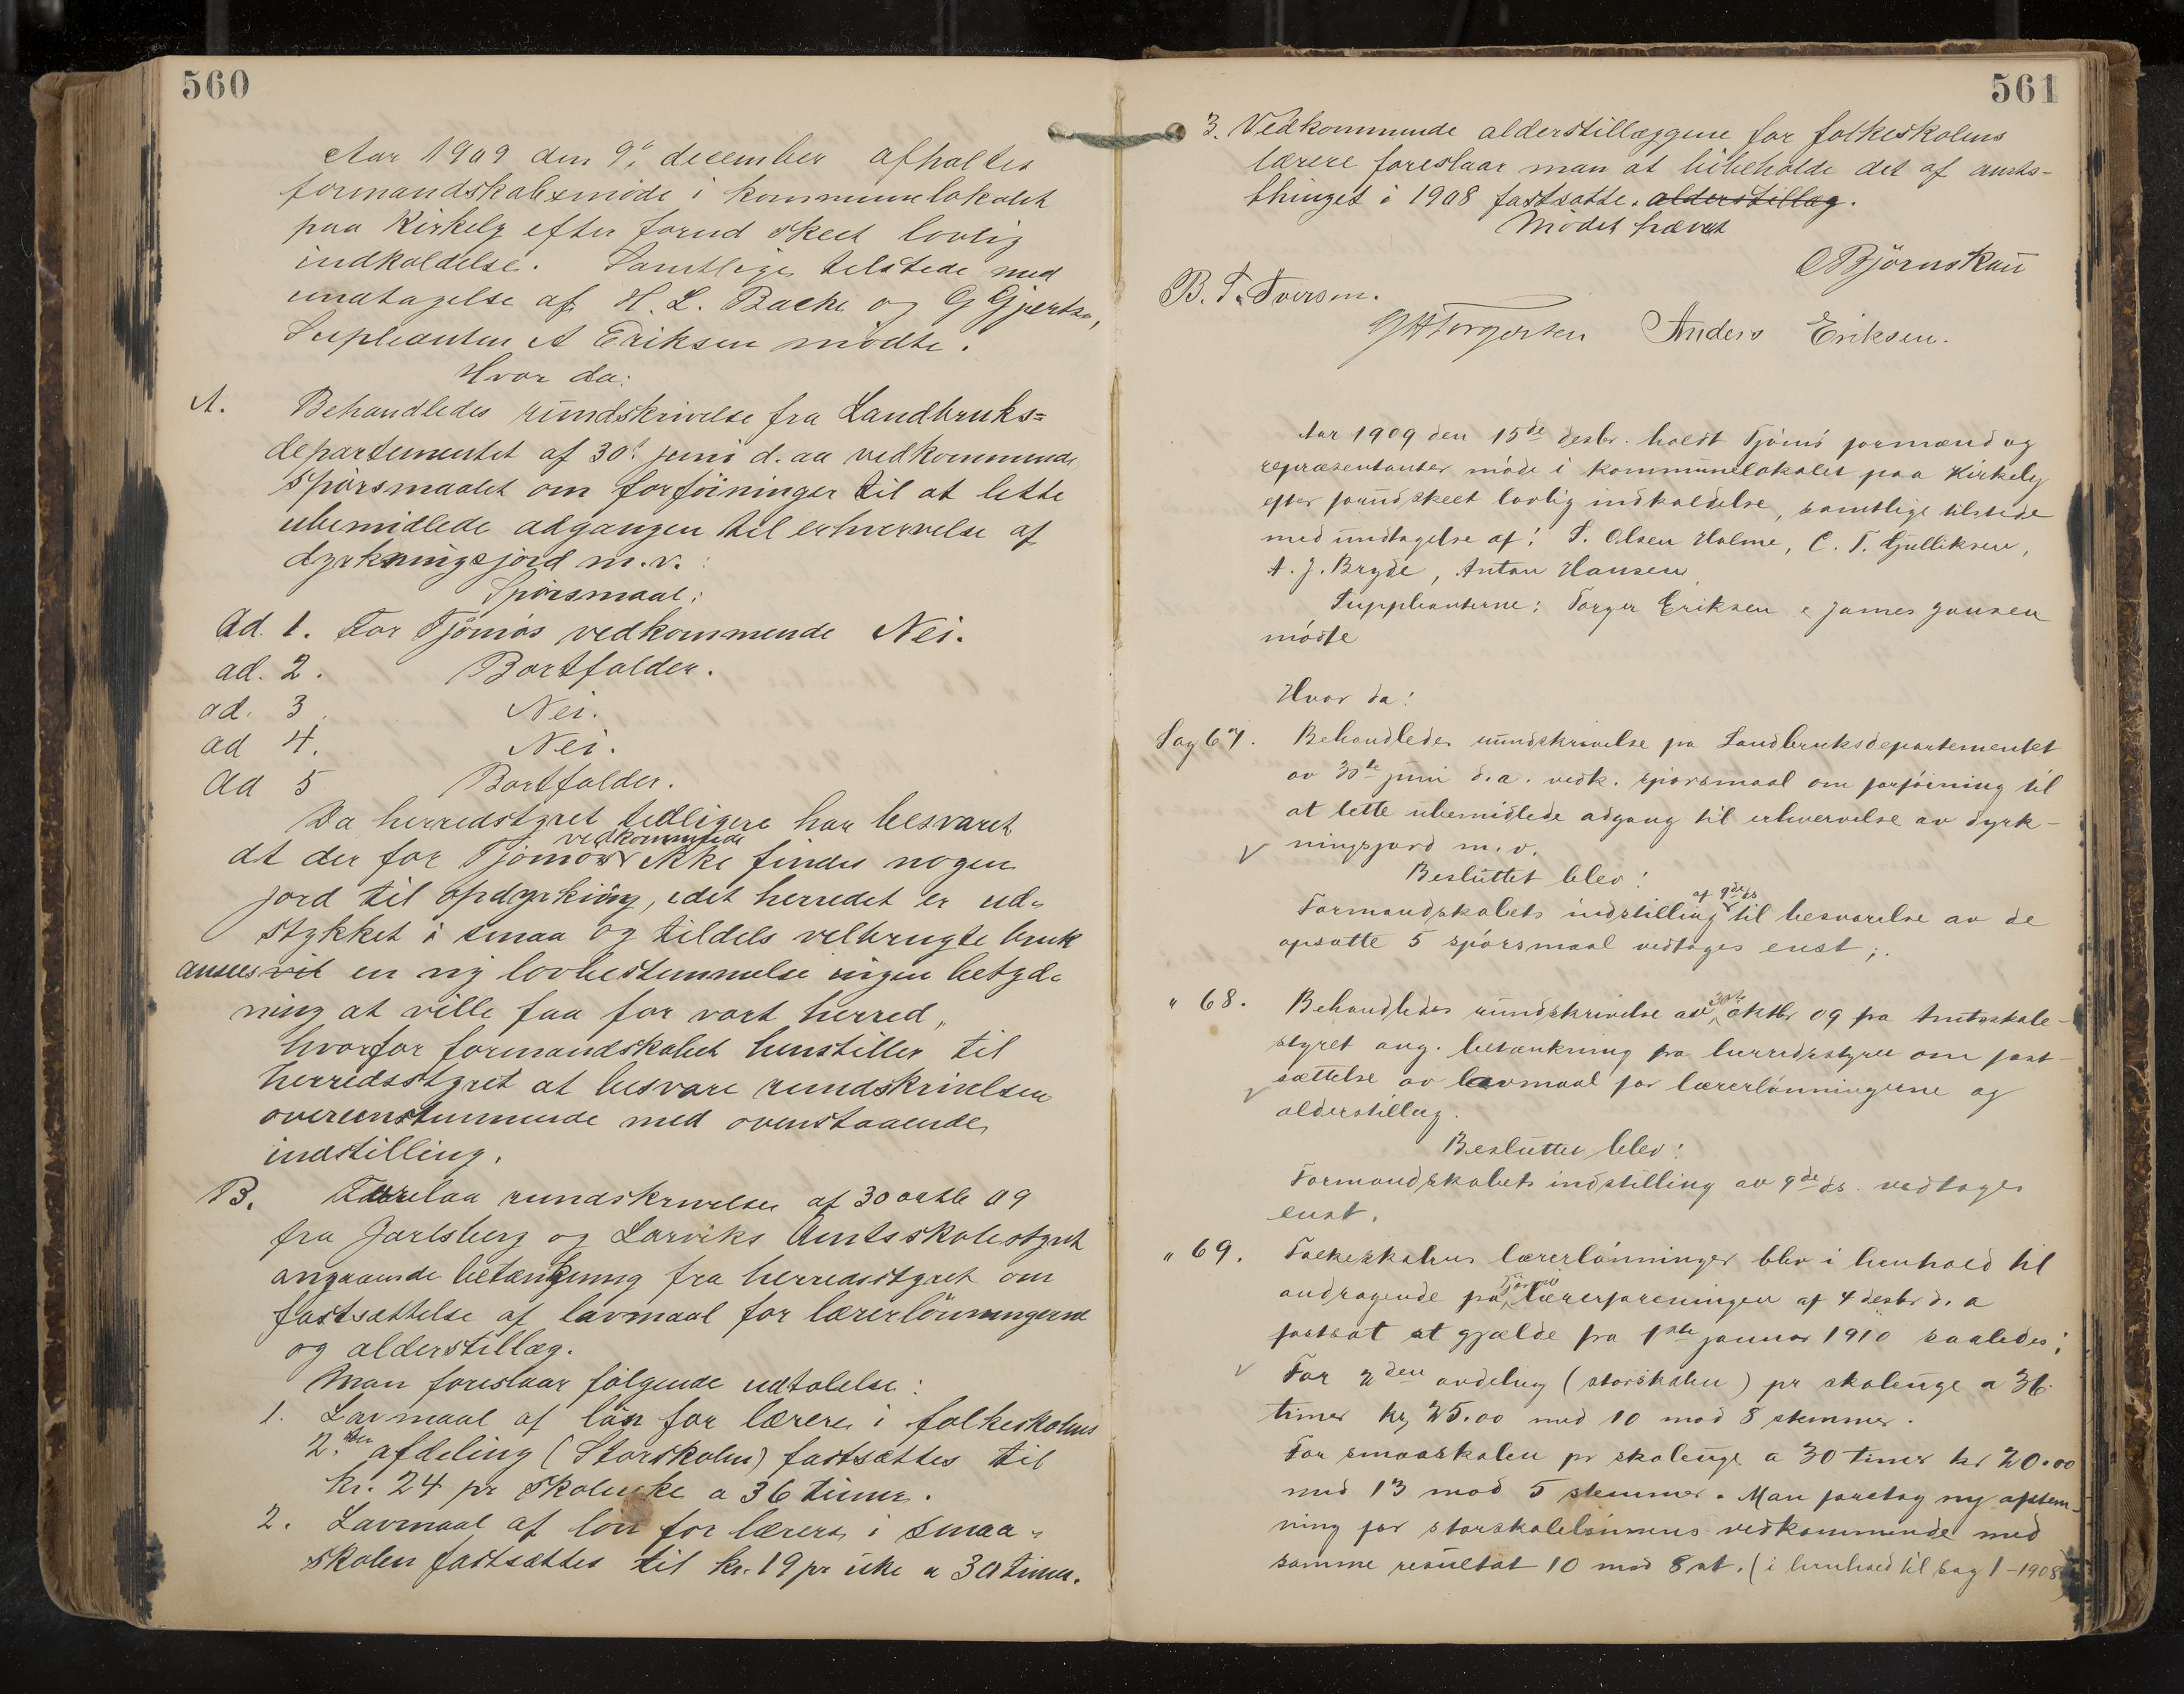 560
Aar 1909 den 9de december afholtes
formandskabsmöde i kommunelokalet
paa Kirkely efter forud skeet lovlig
indkaldelse. Samtlige tilstede med
undtagelse af H. L. Bache og G Gjertsen,
Supleanten A Eriksen mödte.
Hvor da:
A. Behandledes rundskrivelse fra Landbruks=
departementet af 30t juni d. aa vedkommende
Spörsmaalet om forföininger til at lette
ubemidlede adgangen til erhvervelse af
dyrkningsjord m. v. :
Spörsmaal:
Ad. 1. For Tjömös vedkommende Nei.
ad. 2. Bortfalder.
ad. 3. Nei.
ad 4. Nei.
Ad 5 Bortfalder.
Da herredstyret tidligere har besvaret
vedkommende
at der for Tjömös ikke findes nogen
jord til opdyrking, idet herredet er ud-
stykket i smaa og tildels velbrugte bruk
ansees vil en ny lovbestemmelse ingen betyd-
ning at ville faa for vort herred,
hvorfor formandskabet henstiller til
herredsstyret at besvare rundskrivelsen
overenstemmende med ovenstaaende
indstilling.
B. Forelaa rundskrivelse af 30 octb 09
fra Jarlsberg og Larviks Amtsskolestyret
angaaende betænkning fra herredsstyret om
fastsættelse af lavmaal for lærerlönningerne
og alderstillæg.
Man foreslaar fölgende udtalelse:
1. Lavmaal af lön for lærere i folkeskolens
2.den afdeling (Storskolen) fastsættes til
kr. 24 pr skoleuke a 36 timer.
2. Lavmaal af lön for lærere i smaa-
skolen fastsættes til kr. 19 pr uke a 30 timer.
561
3. Vedkommende alderstillæggene for folkeskolens
lærere foreslaar man at bibeholde det af amts-
thinget i 1908 fastsatte. alderstillæg.
Mödet hævet
O Björnskau
B. T. Iversen.
G H Torgersen Anders Eriksen.
Aar 1909 den 15de desbr. holdt Tjömö formænd og
repræsentanter möde i kommunelokalet paa Kirkely
efter forudskeet lovlig indkaldelse, samtlige tilstede
med undtagelse af: T. Olsen Holme, C. T. Gulliksen,
A. J. Bryde, Anton Hansen
Suppleanterne: Torger Eriksen & James Jansen
mödte
Hvor da:
Sag 67. Behandledes rundskrivelse fra Landbruksdepartementet
av 30te juni d. a. vedk. spörsmaal om forföining til
at lette ubemidlede adgang til erhvervelse av dyrk-
ningsjord m. v.
Besluttet blev:
af 9de ds
Formandskabets indstilling til besvarelse av de
opsatte 5 spörsmaal vedtages enst;.
" 68. Behandledes rundskrivelse av 30te oktbr 09 fra Amtsskole-
styret ang. betænkning fra herredsstyret om fast-
sættelse av lavmaal for lærerlönningerne og
alderstillæg.
Besluttet blev:
Formandskabets indstilling av 9de ds. vedtages
enst.
" 69. Folkeskolens lærerlönninger blev i henhold til
Tjömö
andragende fra lærerforeningen af 4 desbr d. a
fastsat at gjælde fra 1ste januar 1910 saaledes;
For 2den avdeling (storskolen) pr skoleuge a 36
timer kr 25.00 med 10 mod 8 stemmer.
For smaaskolen pr skoleuge a 30 timer kr 20.00
med 13 mod 5 stemmer. Man foretog ny afstem-
ning for storskolelönnens vedkommende med
samme resultat 10 mod 8 st. (i henhold til sag 1 - 1908)